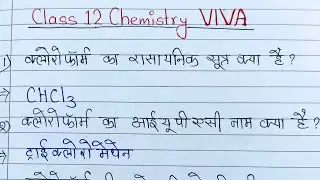 Class 12 Chemistry VIVA
1) क्लोरोफॉर्म का रासायनिक सूत्र क्या है?
→ CHCl₃
2) क्लोरोफॉर्म का आई यू पी ए सी नाम क्या है?
→ ट्राई क्लोरो मेथेन